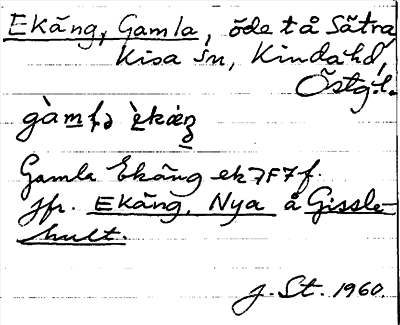 Ekäng, Gamla, öde t å Sätra,
Kisa sn, Kinda hd,
Östg. l.
Gamla Ekäng ek 7F7f.
jfr. Ekäng, Nya å Gissle-
hult.
J. St. 1960.